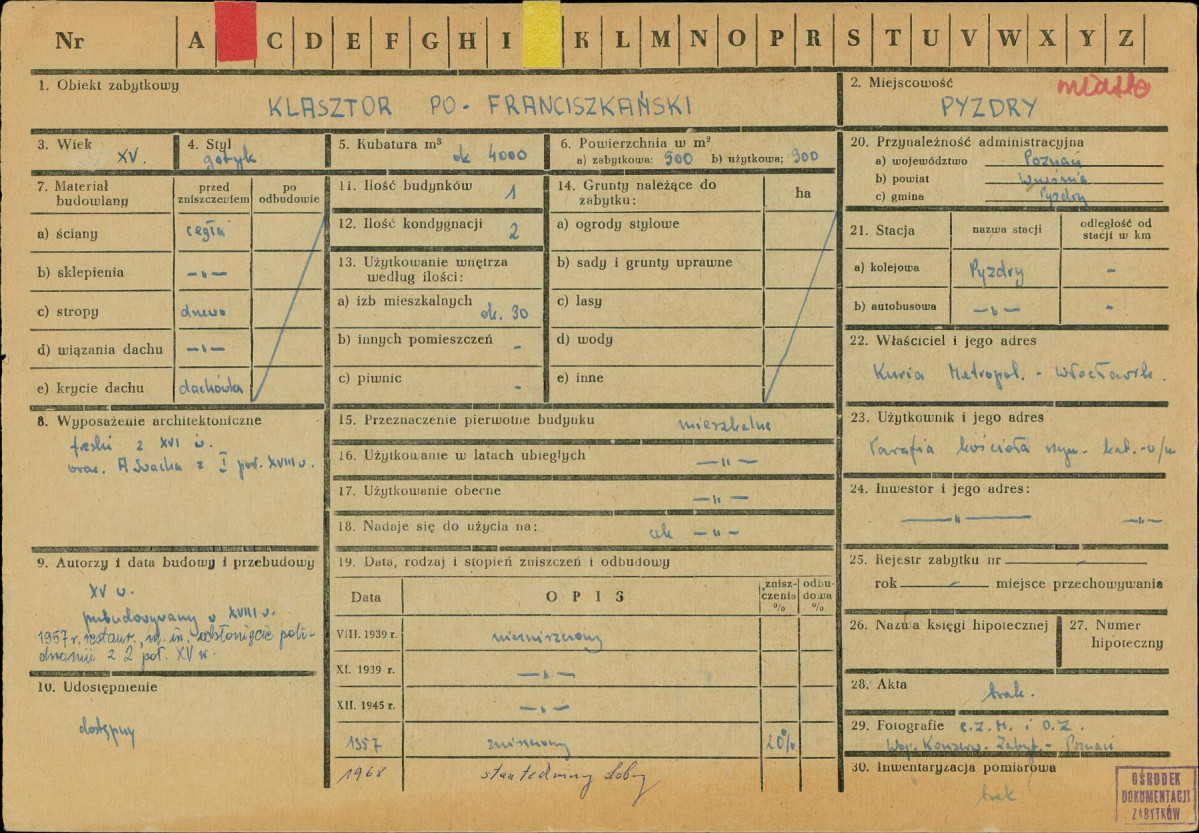 Nr A C D E F G H I K L M N O P R S T U V W X Y Z
1. Obiekt zabytkowy
KLASZTOR PO-FRANCISZKAŃSKI
2. Miejscowość
miasto
PYZDRY
3. Wiek
XV.
4. Styl
gotyk
5. Kubatura m³
ok 4000
6. Powierzchnia w m²
a) zabytkowa: 500 b) użytkowa: 300
7. Materiał
budowlany
przed
zniszczeniem
po
odbudowie
a) ściany cegła
b) sklepienia —„—
c) stropy drewno
d) wiązania dachu —„—
e) krycie dachu dachówka
8. Wyposażenie architektoniczne
freski z XVI w.
oraz. A Swacha z I poł. XVIII w.
9. Autorzy i data budowy i przebudowy
XV w.
przebudowywany w XVIII w.
1957 r. restaur., m. in. odsłonięcie poli-
chromii z 2 poł. XV w.
10. Udostępnienie
dostępny
11. Ilość budynków 1
12. Ilość kondygnacji 2
13. Użytkowanie wnętrza
według ilości:
a) izb mieszkalnych ok. 30
b) innych pomieszczeń -
c) piwnic -
14. Grunty należące do
zabytku:
ha
a) ogrody stylowe
b) sady i grunty uprawne
c) lasy
d) wody
e) inne
15. Przeznaczenie pierwotne budynku mieszkalne
16. Użytkowanie w latach ubiegłych —„—
17. Użytkowanie obecne —„—
18. Nadaje się do użycia na: —„—
19. Data, rodzaj i stopień zniszczeń i odbudowy
Data
OPIS
znisz-
czenia
%
odbu-
dowa
%
VIII. 1939 r. niezniszczony
XI. 1939 r. —„—
XII. 1945 r. —„—
1957 zniszczony 20%
1968 stan techniczny dobry
20. Przynależność administracyjna
a) województwo Poznań
b) powiat Września
c) gmina Pyzdry
21. Stacja
nazwa stacji
odległość od
stacji w km
a) kolejowa Pyzdry -
b) autobusowa —„— -
22. Właściciel i jego adres
Kuria Metropol. - Włocławek.
23. Użytkownik i jego adres
Parafia kościoła rzym.- kat.-w/m
24. Inwestor i jego adres:
—„— —„—
25. Rejestr zabytku nr -
rok - miejsce przechowywania
26. Nazwa księgi hipotecznej
27. Numer
hipoteczny
28. Akta
brak.
29. Fotografie C.Z.M. i O.Z.
Woj. Konserw. Zabyt.- Poznań
30. Inwentaryzacja pomiarowa
brak
OŚRODEK
DOKUMENTACJI
ZABYTKÓW